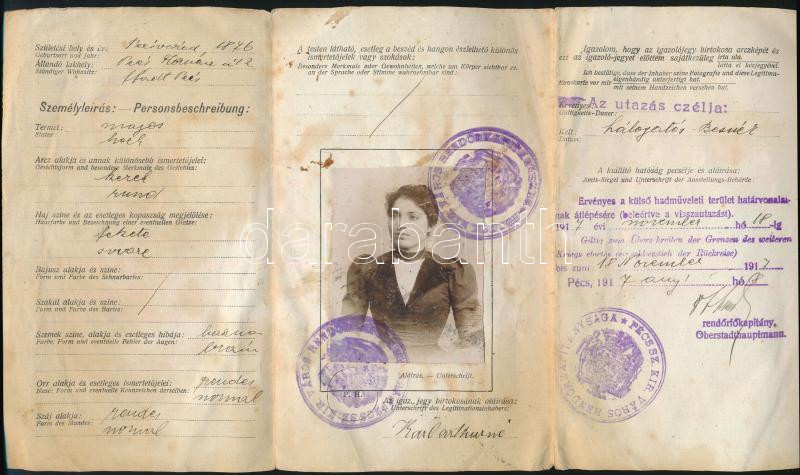 Születési hely és év: Pécsvárad 1876
Geburtsort und Jahr:
Állandó lakhely: Pécs
Ständiger Wohnsitz: Stadt Pécs
Személyleirás: — Personsbeschreibung:
Termet: magas
Statur: hoch
Arcz alakja és annak különösebb ismertetőjelei:
Gesichtsform und besondere Merkmale des Gesichtes:
kerek
rund
Haj színe és az esetleges kopaszság megjelölése:
Haarfarbe und Bezeichnung einer eventuellen Glatze:
fekete
Bajusz alakja és színe:
Form und Farbe des Schnurbartes:
Szakál alakja és színe:
Form und Farbe des Bartes:
Szemek színe, alakja és esetleges hibája: barna
Farbe, Form und eventuelle Fehler der Augen: braun
Orr alakja és esetleges ismertetőjelei: rendes
Nase: Form und eventuelle Kennzeichen derselben: normal
Száj alakja: rendes
Form des Mundes: normal
A testen látható, esetleg a beszéd és hangon észlelhető különös
ismertetőjelek vagy szokások:
Besondere Merkmale oder Gewohnheiten, welche am Körper sichtbar oder
an der Sprache oder Stimme wahrnehmbar sind:
Aláirás. — Unterschrift.
P. H.
Az igaz. jegy birtokosának aláirása:
Unterschrift des Legitimationsinhabers:
Igazolom, hogy az igazolójegy birtokosa arczképét és
ezt az igazoló-jegyet előttem sajátkezűleg írta alá.
látta el kézjegyével.
Ich bestätige, dass der Inhaber seine Fotografie und diese Legitima-
tionskarte vor mir eigenhändig unterfertigt hat.
mit seinem Handzeichen versehen hat.
Érvényes:
Az utazás czélja:
Giltigkeits-Dauer:
Kelt:
Datum:
A kiállító hatóság pecsétje és aláirása:
Amts-Siegel und Unterschrift der Ausstellungs-Behörde:
Érvényes a külső hadműveleti terület határvonalá-
nak átlépésére (beleértve a visszautazást).
1917 évi november hó 18-ig
Giltig zum Überschreiten der Grenzen des weiteren
Kriegs
der Rückreise)
bis zum 18 November 1917
Pécs, 1917
rendőrfőkapitány.
Oberstadthauptmann.
PÉCS SZ. KIR. VÁROS RENDŐRKAPITÁNYSÁGA
darabanth.com